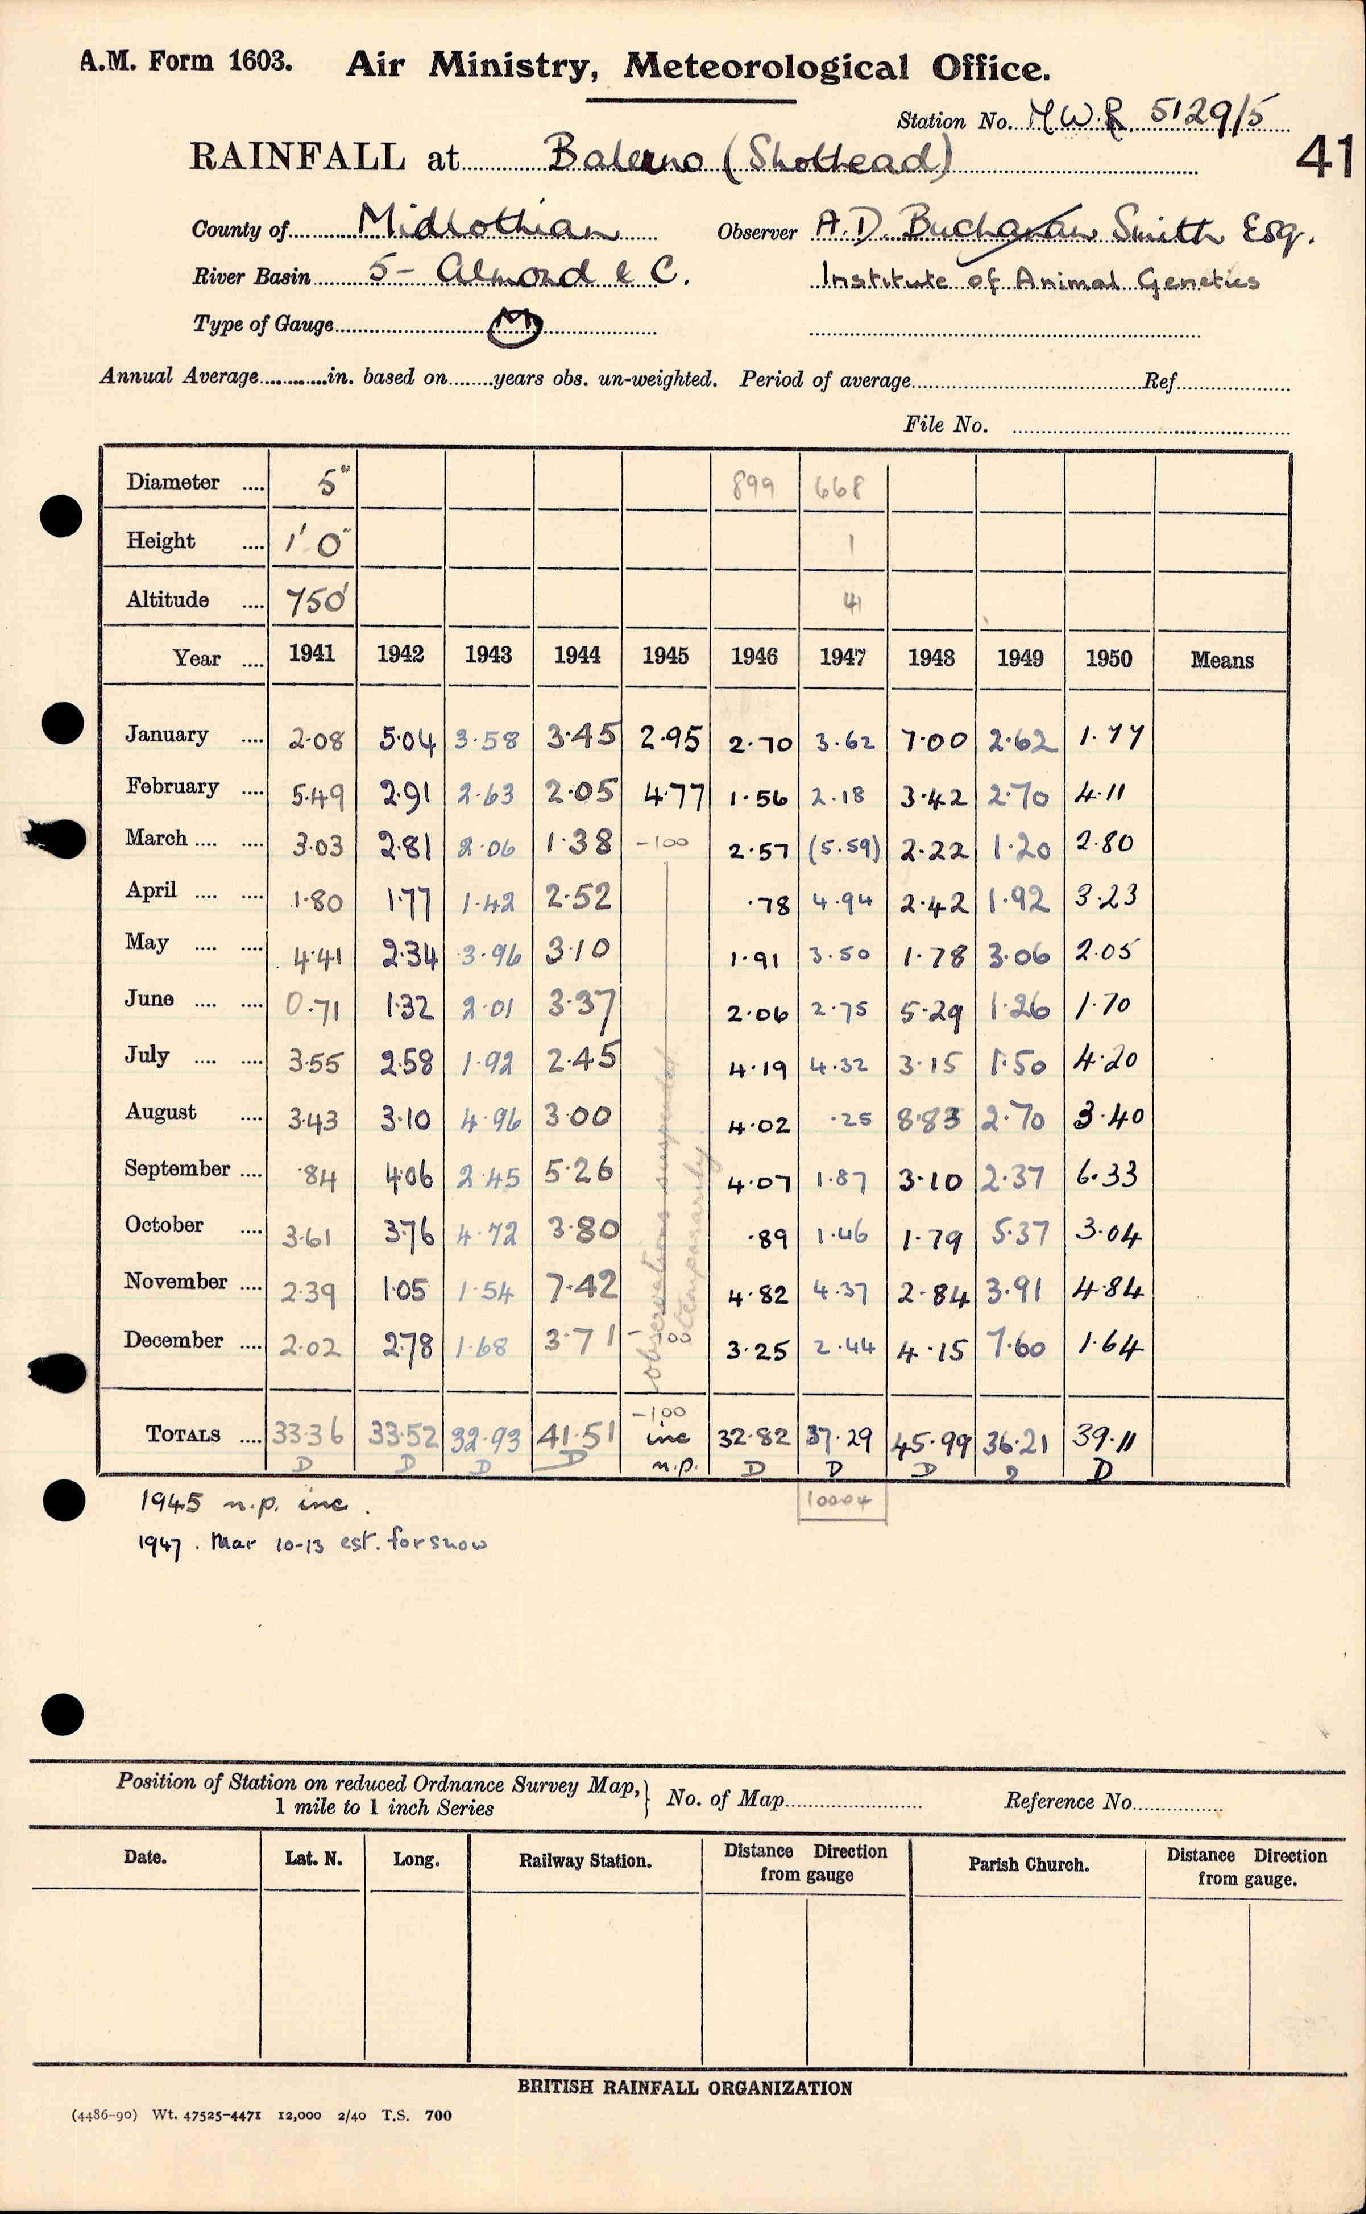 A.M. Form 1603. Air Ministry, Meteorological Office.
Station No. M.W.R. 5129/5
RAINFALL at Balerno (Shothead) 41
County of Midlothian Observer A.D. Buchanan Smith Esq.
River Basin 5 - Almond & C. Institute of Animal Genetics
Type of Gauge M
Annual Average in. based on years obs. un-weighted. Period of average Ref
File No.
Diameter 5" 899 668
Height 1' 0" 1
Altitude 750' 4
Year 1941 1942 1943 1944 1945 1946 1947 1948 1949 1950 Means
January 2.08 5.04 3.58 3.45 2.95 2.70 3.62 7.00 2.62 1.77
February 5.49 2.91 2.63 2.05 4.77 1.56 2.18 3.42 2.70 4.11
March 3.03 2.81 2.06 1.38 -100 2.57 (5.59) 2.22 1.20 2.80
April 1.80 1.77 1.42 2.52 .78 4.94 2.42 1.92 3.23
May 4.41 2.34 3.96 3.10 1.91 3.50 1.78 3.06 2.05
June 0.71 1.32 2.01 3.37 2.06 2.75 5.29 1.26 1.70
July 3.55 2.58 1.92 2.45 4.19 4.32 3.15 1.50 4.20
August 3.43 3.10 4.96 3.00 4.02 .25 8.83 2.70 3.40
September .84 4.06 2.45 5.26 4.07 1.87 3.10 2.37 6.33
October 3.61 3.76 4.72 3.80 .89 1.46 1.79 5.37 3.04
November 2.39 1.05 1.54 7.42 4.82 4.37 2.84 3.91 4.84
December 2.02 2.78 1.68 3.71 3.25 2.44 4.15 7.60 1.64
observations suspended
temporarily.
-100
TOTALS 33.36 33.52 32.93 41.51 inc 32.82 37.29 45.99 36.21 39.11
D D D D n.p. D D D D D
1945 n.p. inc. 10004
1947. Mar 10-13 est. for snow
Position of Station on reduced Ordnance Survey Map,
1 mile to 1 inch Series } No. of Map Reference No.
Date. Lat. N. Long. Railway Station. Distance Direction from gauge Parish Church. Distance Direction from gauge.
BRITISH RAINFALL ORGANIZATION
(4486-90) Wt. 47525-4471 12,000 2/40 T.S. 700